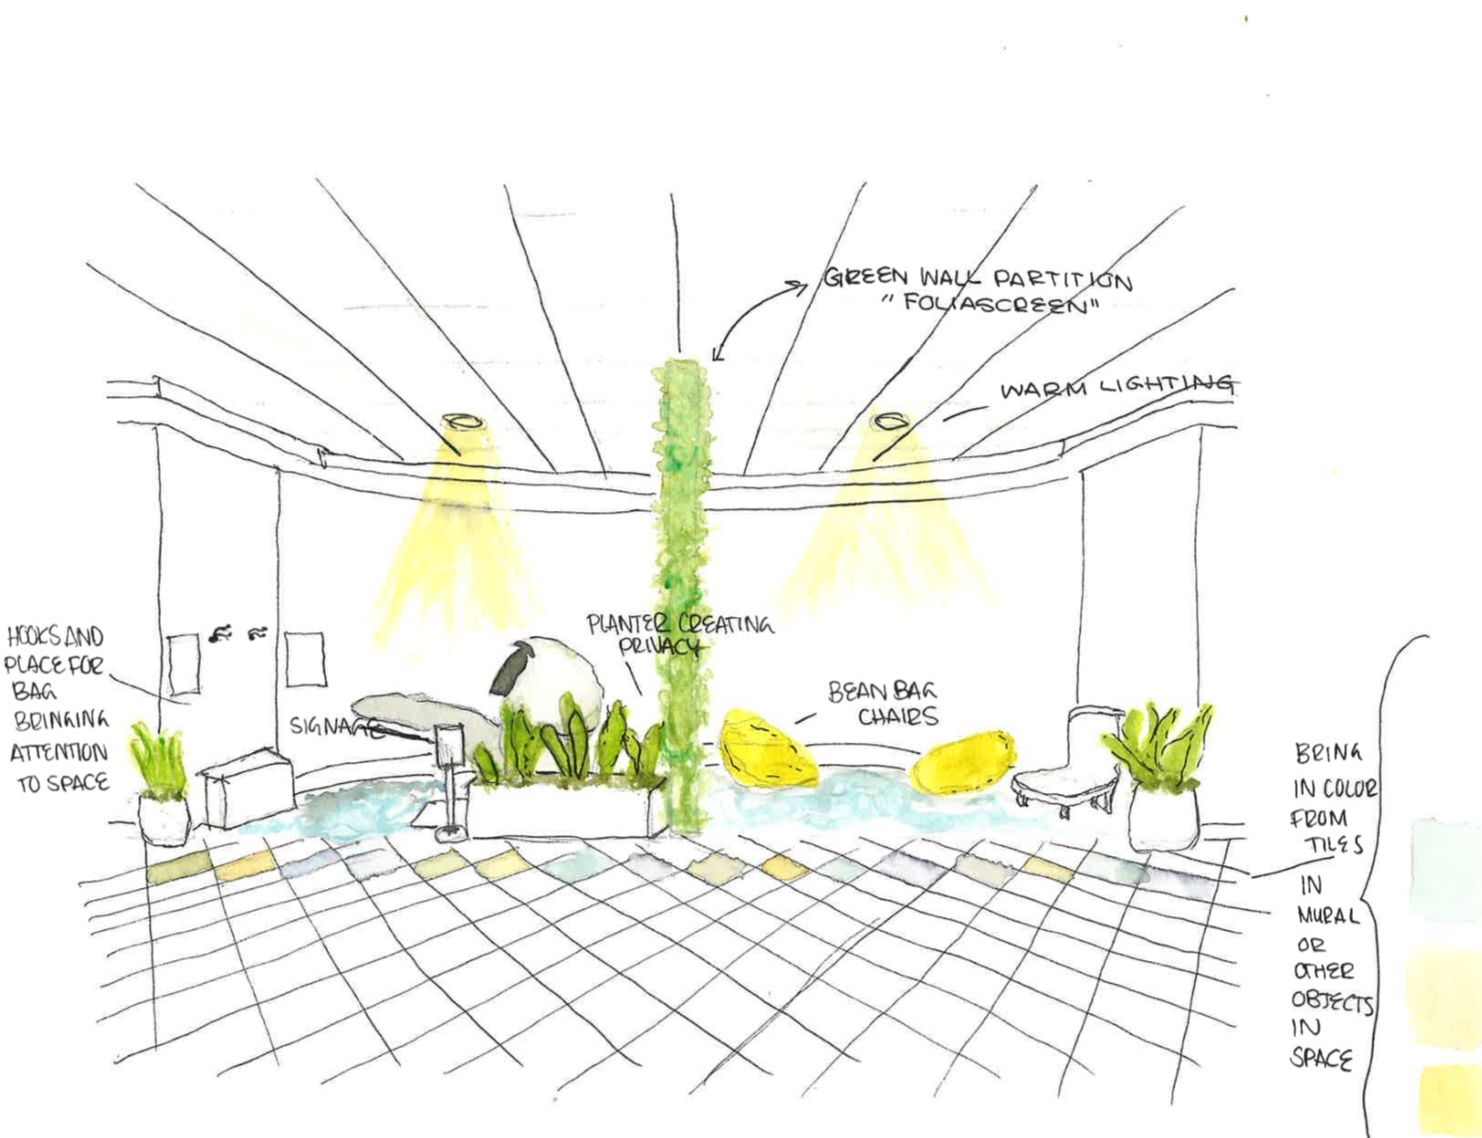 GREEN WALL PARTITION
"FOLIASCREEN"
WARM LIGHTING
HOOKS AND
PLACE FOR
BAG
BRINGING
ATTENTION
TO SPACE
SIGNAGE
PLANTER CREATING
PRIVACY
BEAN BAG
CHAIRS
BRING
IN COLOR
FROM
TILES
IN
MURAL
OR
OTHER
OBJECTS
IN
SPACE